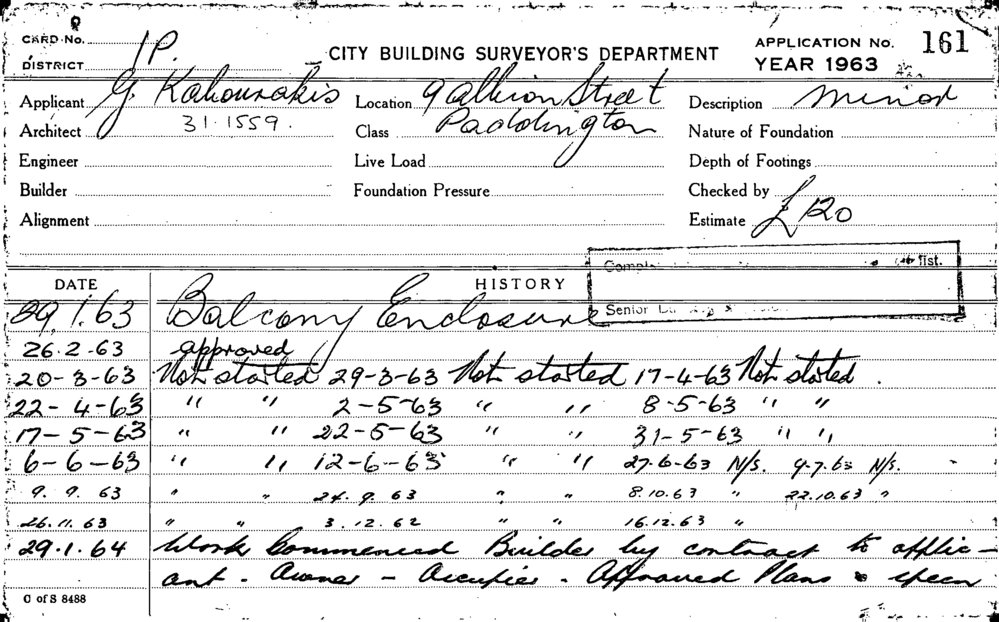 CARD No.
DISTRICT 1P.
CITY BUILDING SURVEYOR'S DEPARTMENT
APPLICATION No. 161
YEAR 1963
Applicant G. Kahourakis Location 9 Albion Street Description minor
Architect 31.1559. Class Paddington Nature of Foundation
Engineer Live Load Depth of Footings
Builder Foundation Pressure Checked by
Alignment Estimate £120
list.
DATE HISTORY
Senior
29.1.63 Balcony Enclosure
26.2.63 approved
20-3-63 Not started 29-3-63 Not started 17-4-63 Not started.
22-4-63 " " 2-5-63 " " 8-5-63 " "
17-5-63 " " 22-5-63 " " 31-5-63 " "
6-6-63 " " 12-6-63 " " 27.6.63 N/S. 9.7.63 N/S.
9.9.63 " " 24.9.63 " " 8.10.63 " 22.10.63 "
26.11.63 " " 3.12.62 " " 16.12.63 "
29.1.64 Work Commenced Builder by contract to applic-
ant - Owner - Occupier - Approved Plans &
C of S 8488